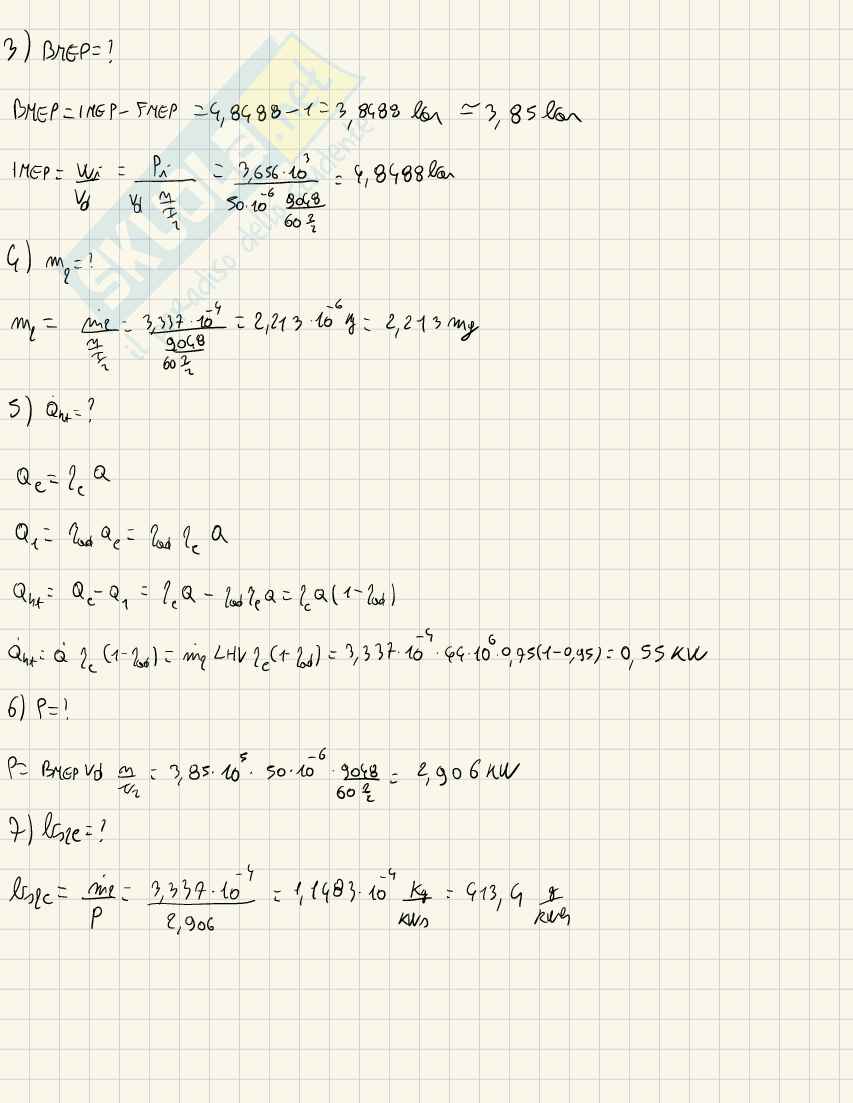 3) BMEP=?
BMEP = IMEP - FMEP = 4,8488 - 1 = 3,8488 bar ≃ 3,85 bar
IMEP = Wi/Vd = Pi/(Vd n/(τ/2)) = 3,656·10³/(50·10⁻⁶ 9048/(60 2/2)) = 4,8488 bar
4) mf = ?
mf = ṁf/(n/(τ/2)) = 3,337·10⁻⁴/(9048/(60 2/2)) = 2,213·10⁻⁶ kg = 2,213 mg
5) Q̇ht = ?
Qc = ηc Q
Q1 = ηad Qc = ηad ηc Q
Qht = Qc - Q1 = ηc Q - ηad ηc Q = ηc Q (1 - ηad)
Q̇ht = Q̇ ηc (1 - ηad) = ṁf LHV ηc (1 - ηad) = 3,337·10⁻⁴ · 44·10⁶ · 0,75 (1 - 0,95) = 0,55 KW
6) P = ?
P = BMEP Vd n/(τ/2) = 3,85·10⁵ · 50·10⁻⁶ · 9048/(60 2/2) = 2,906 KW
7) bsfc = ?
bsfc = ṁf/P = 3,337·10⁻⁴/2,906 = 1,1483·10⁻⁴ Kg/KWs = 413,4 g/KWh
SKUOLA.net